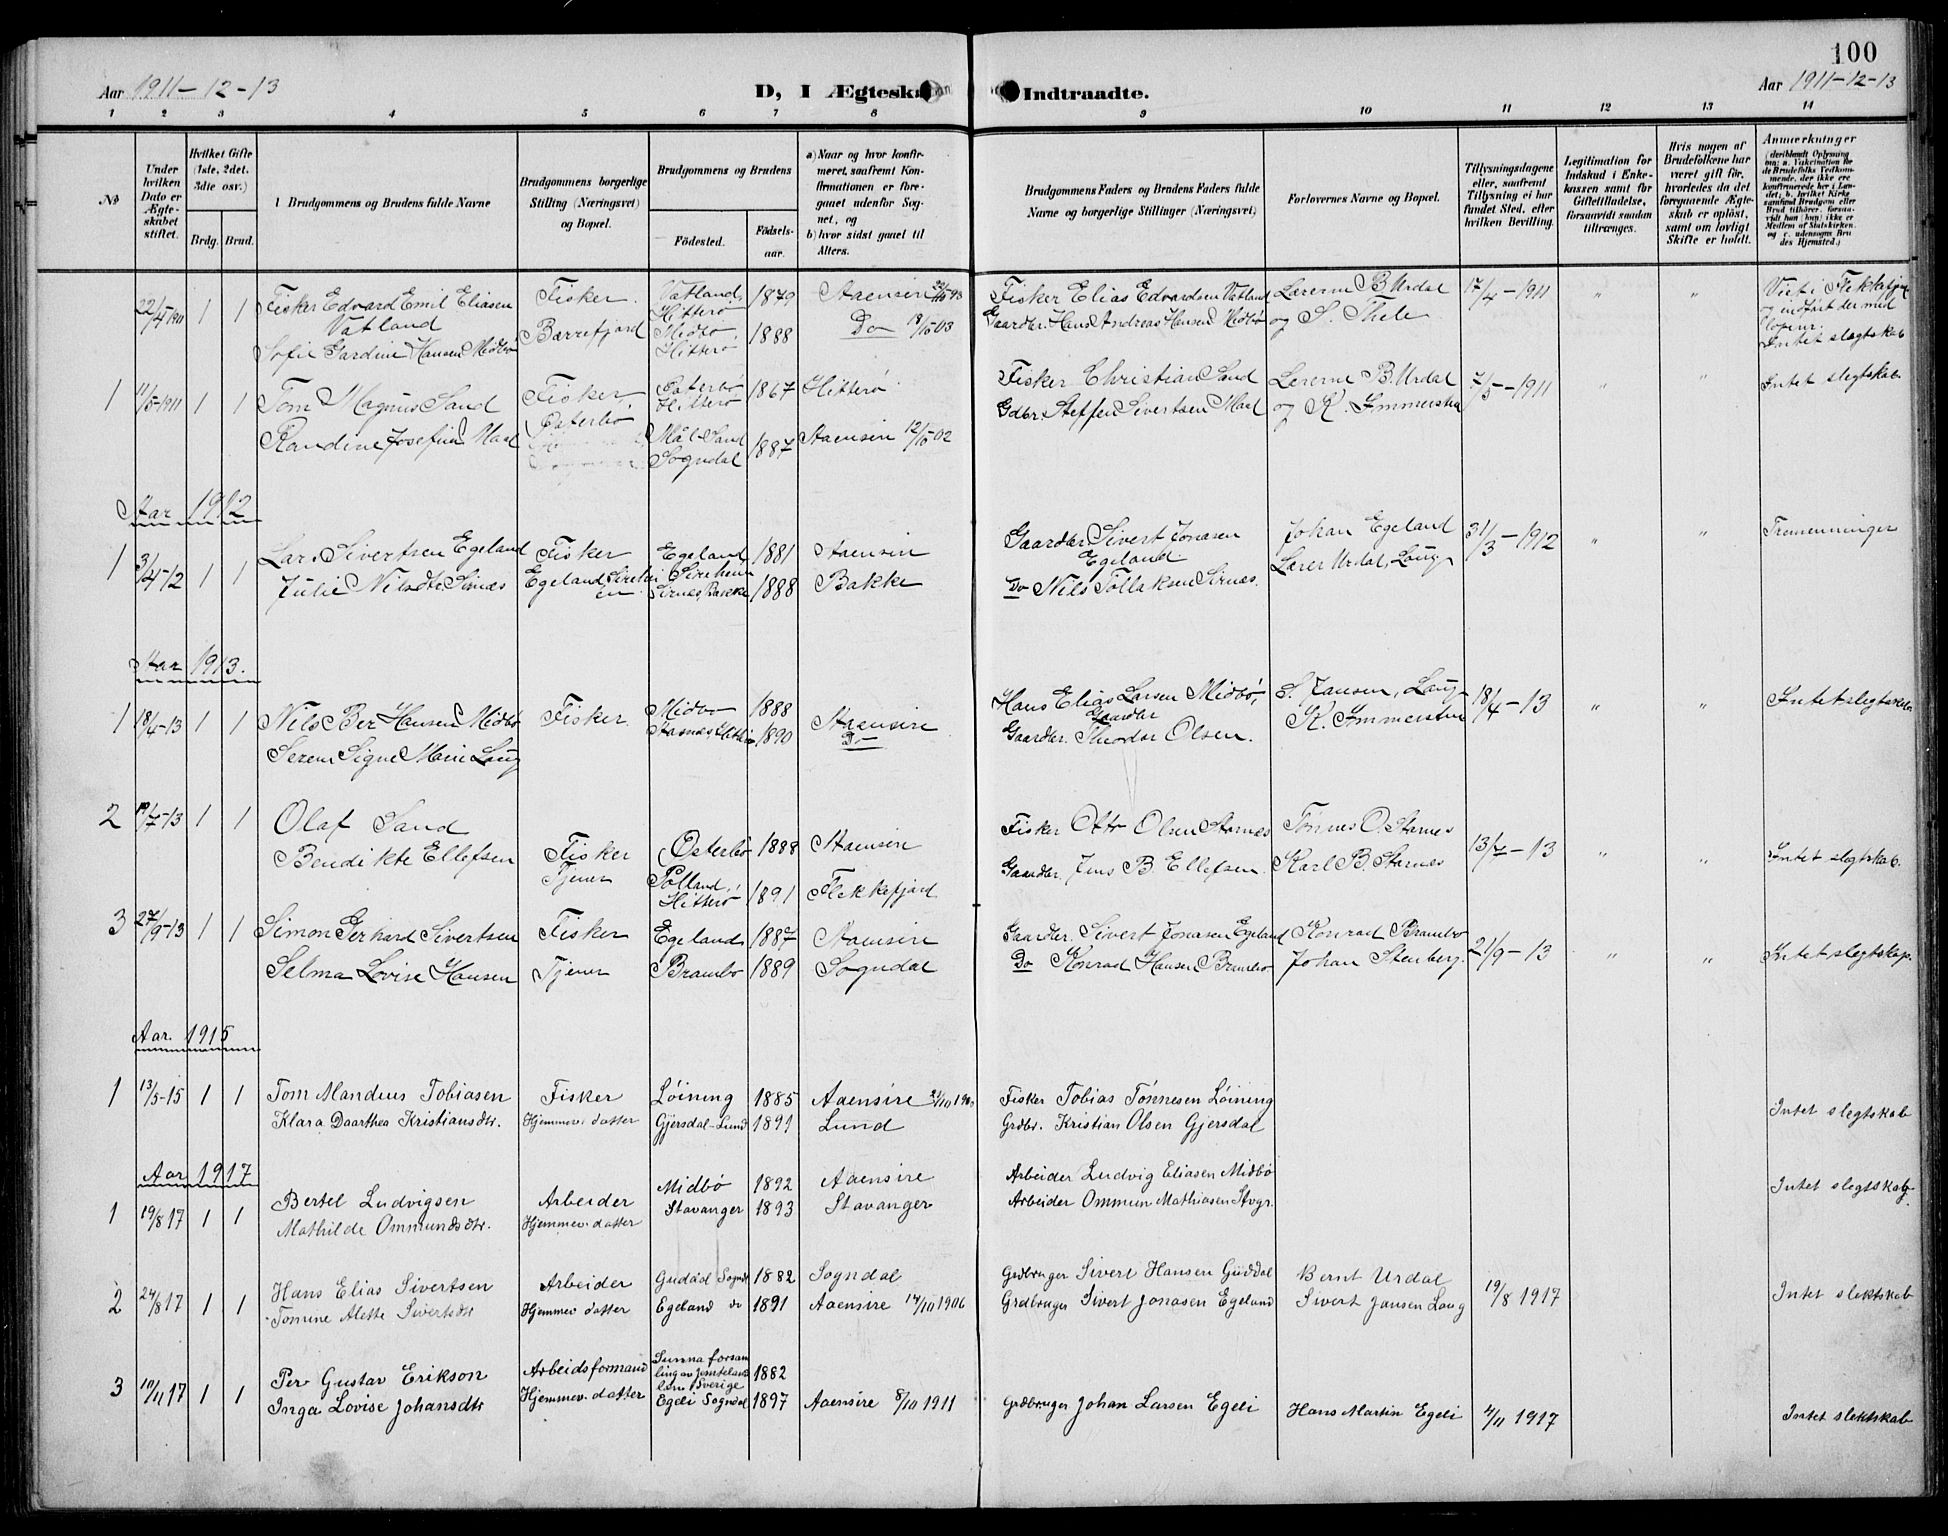 100
Aar 1911-12-13
D, I Ægteska
Indtraadte.
Aar 1911-12-13
1 2 3 4 5 6 7 8 9 10 11 12 13 14
No
Under hvilken Dato er Ægteskabet stiftet.
Hvilket Gifte (1ste, 2det, 3die osv.)
Brdg. Brud.
Brudgommens og Brudens fulde Navne
Brudgommens borgerlige Stilling (Næringsvei) og Bopæl.
Brudgommens og Brudens
Fødested.
Fødselsaar.
a) Naar og hvor konfirmeret, saafremt Konfirmationen er foregaaet udenfor Sognet, og
b) hvor sidst gaaet til Alters.
Brudgommens Faders og Brudens Faders fulde Navne og borgerlige Stillinger (Næringsvei)
Forlovernes Navne og Bopæl.
Tillysningsdagene eller, saafremt Tillysning ei har fundet Sted, efter hvilken Bevilling.
Legitimation for Indskud i Enkekassen samt for Giftetilladelse, forsaavidt saadan tiltrænges.
Hvis nogen af Brudefolkene har været gift før, hvorledes da det foregaaende Ægteskab er opløst, samt om lovligt Skifte er holdt.
Anmerkninger
22/4 1911 1 1 Fisker Edvard Emil Eliasen Fisker. Vatland, Hitterø 1879 Aaensire Fisker Elias Edvardsen Vatland Lærerne B Urdal 17/4-1911 " " Viet i Flekkefjord
Vatland Barrefjord Midbø Hitterø 1888 Do 18/10 03 Gaardbr. Hans Andreas Hansen Midbø og S. Thele og indført der med
Sofie Gardine Hansen Midbø Intet slegtskab
1 11/5-1911 1 1 Tom Magnus Sand Fisker, Østerbø Hitterø 1867 Hitterø Fisker Christian Sand Lærerne B. Urdal 7/5-1911 " " Intet slegtskab.
Randine Josefine Maal Østerbø Mål-Sand Sogndal 1887 Aaensire 12/10-02 Gdbr. Steffen Sivertsen Maal og K. Immerstein
Aar 1912
1 3/4-12 1 1 Lars Sivertsen Egeland Fisker Egeland 1881 Aaensire Gaardbr. Sivert Jonasen Egeland. Johan Egeland 31/3-1912 " " Tremenninger
Julie Nilsdtr. Sirnæs Egeland, Sirnes, Bakke 1888 Bakke Do Nils Tollaksen Sirnæs. Lærer Urdal, Laug
Aar 1913.
1 18/4-13 1 1 Nils Ber Hansen Midbø Fisker. Midbø 1888 Aaensire Hans Elias Larsen Midbø, Gaardbr S. Jansen, Laug 18/4-13 " " Intet slegtskab.
Seren Signe Marie Laug 1890 Do Gaardbr. Theodor Olsen. K. Immerstein
2 19/7-13 1 1 Olaf Sand Fisker Østerbø 1888 Aaensire Fisker Otto Olsen Starnes Tønnes O. Starnes 13/7-13 " " Intet slegtskab.
Bendikte Ellefsen Tjener Polland, Hitterø 1891 Flekkefjord Gaardbr. Jens B. Ellefsen. Karl B. Starnes
3 27/9-13 1 1 Simon Gerhard Sivertsen Fisker Egeland 1887 Aaensire Gaardbr. Sivert Jonasen Egeland Konrad Brambo 21/9-13 " " Intet slegtskap.
Selma Lovise Hansen Tjener Brambo 1889 Sogndal Do Konrad Hansen Brambo Johan Stenberg.
Aar. 1915
1 13/5-15 1 1 Tom Mandius Tobiasen Fisker Løining 1885 Aaensire Fisker Tobias Tønnesen Løining
Klara Daarthea Kristiansdtr. Hjemmev. datter Gjersdal-Lund 1891 Lund Grdbr. Kristian Olsen Gjersdal Intet slegtskab
Aar 1917
1 19/8 17 1 1 Bertel Ludvigsen Arbeider Midbø 1892 Aaensire Arbeider Ludvig Eliasen Midbø Intet slegtskab.
Mathilde Ommundsdtr. Hjemmev. datter Stavanger 1893 Stavanger Arbeider Ommun Mathiasen Stvgr.
2 24/8 17 1 1 Hans Elias Sivertsen Arbeider Guddal Sogndl 1882 Sogndal Grdbruger Sivert Hansen Guddal Bernt Urdal 19/8 1917 Intet slektskab
Tomine Alette Sivertsdtr Hjemmev. datter Egeland do 1891 Aaensire 14/10 1906 Grdbruger Sivert Jonasen Egeland Sivert Jansen Laug
3 10/11 17 1 1 Per Gustav Erikson Arbeidsformand Sunna forsamling av Jemtelands læn i Sverige 1882
Inga Lovise Johansdtr Hjemmev. datter Egeli Sogndal 1897 Aaensire 8/10 1911 Grdbruger Johan Larsen Egeli Hans Martin Egeli 4/11 1917 Intet slektskab